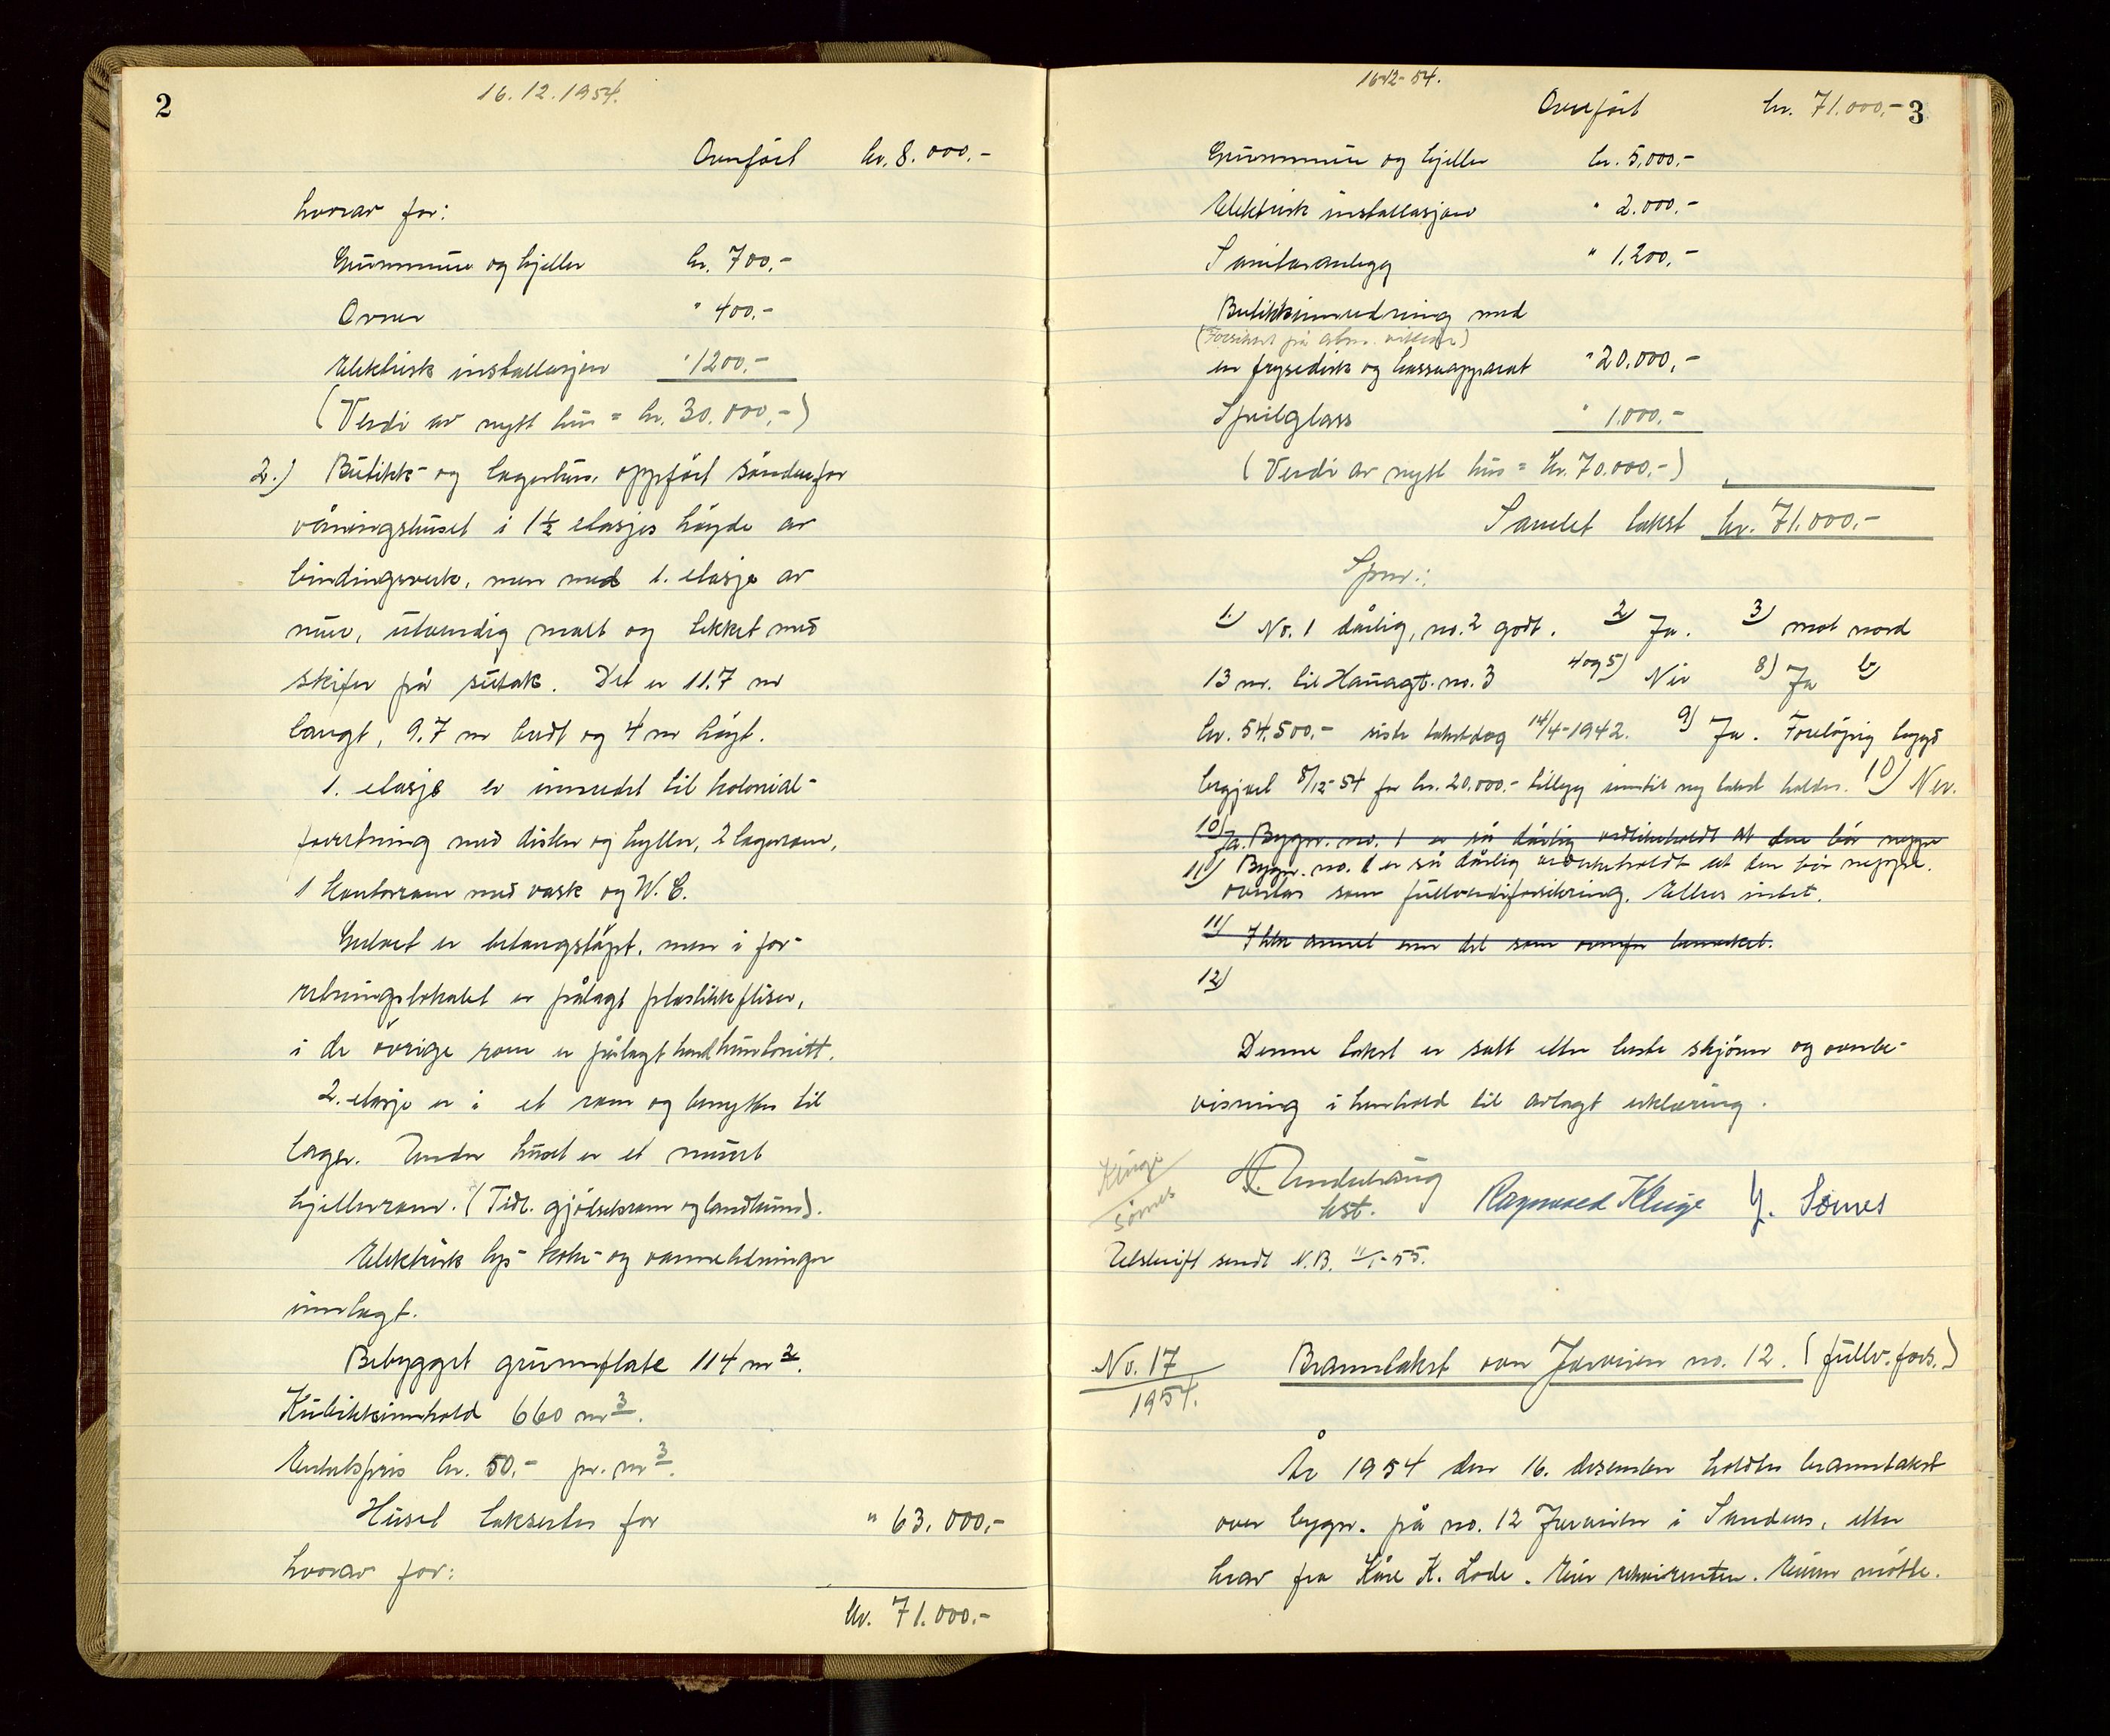 2
16.12.1954.
Overført kr. 8.000,-
hvorav for:
Grunnmure og kjeller kr. 700,-
Ovner " 400,-
Elektrisk installasjon " 1200,-
(Verdi av nytt hus = kr. 30.000,-)
2.) Butikk- og lagerhus, oppført søndenfor
våningshuset i 1½ etasjes høyde av
bindingsverk, men med 1. etasje av
mur, utvendig malt og tekket med
skifer på sutak. Det er 11,7 m
langt, 9,7 m bredt og 4 m høyt.
1. etasje er innredet til kolonial-
forretning med disker og hyller, 2 lagerrom,
1 kontorrom med vask og W.C.
Gulvet er betongstøpt, men i for-
retningslokalet er pålagt plastikkfliser,
i de øvrige rom er pålagt
2. etasje er i et rom og benyttes til
lager. Under huset er et muret
kjellerrom. (Tidl. gjødselrom og landkum).
Elektrisk lys- koke- og varmeledninger
innlagt.
Bebygget grunnflate 114 m2.
Kubikkinnhold 660 m3.
Enhetspris kr. 50,- pr. m3.
Huset takseres for " 63.000,-
hvorav for:
kr. 71.000,-
16-12-54.
3
Overført kr. 71.000,-
Grunnmure og kjeller kr. 5.000,-
Elektrisk installasjon " 2.000,-
Sanitæranlegg " 1.200,-
Butikkinnredning med
(Forsikret på alm. vilkår)
en frysedisk og kasseapparat " 20.000,-
Speilglass " 1.000,-
(Verdi av nytt hus = kr. 70.000,-)
Samlet takst kr. 71.000,-
Spm.:
1.) No. 1 dårlig, no. 2 godt. 2) Ja. 3) mot nord
13 m. til Hauagt. no. 3 4 og 5) Nei 8) Ja b)
kr. 54.500,- siste takstdag 14/4-1942. 9) Ja. Foreløpig
begjært 8/12-54 for kr. 20.000.- tillegg inntil ny takst holdes. 10) Nei.
10) Ja. Bygn. no. 1 er så dårlig vedlikeholdt at den bør neppe
11) Bygn. no. 1 er så dårlig vedlikeholdt at den bør neppe
overtas som fullverdiforsikring. Ellers intet.
11) Ikke annet enn det som ovenfor bemerket.
12)
Denne takst er satt etter beste skjønn og overbe-
visning i henhold til avlagt erklæring.
Kluge
Sømes
Underhaug
kst. Raymond Kluge Y. Sømes
Utskrift sendt N.B. 11/1-55.
No. 17
1954. Branntakst over Jærveien no. 12. (fullv. fors.)
År 1954 den 16. desember holdtes branntakst
over bygn. på no. 12 Jærveien i Sandnes, etter
krav fra Kåre K. Lode. Eier rekvirenten. Eieren møtte.